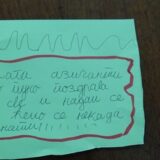 ата азиланти
пуно поздрава
све и надам се
ћемо се некада
нати!!!!!!